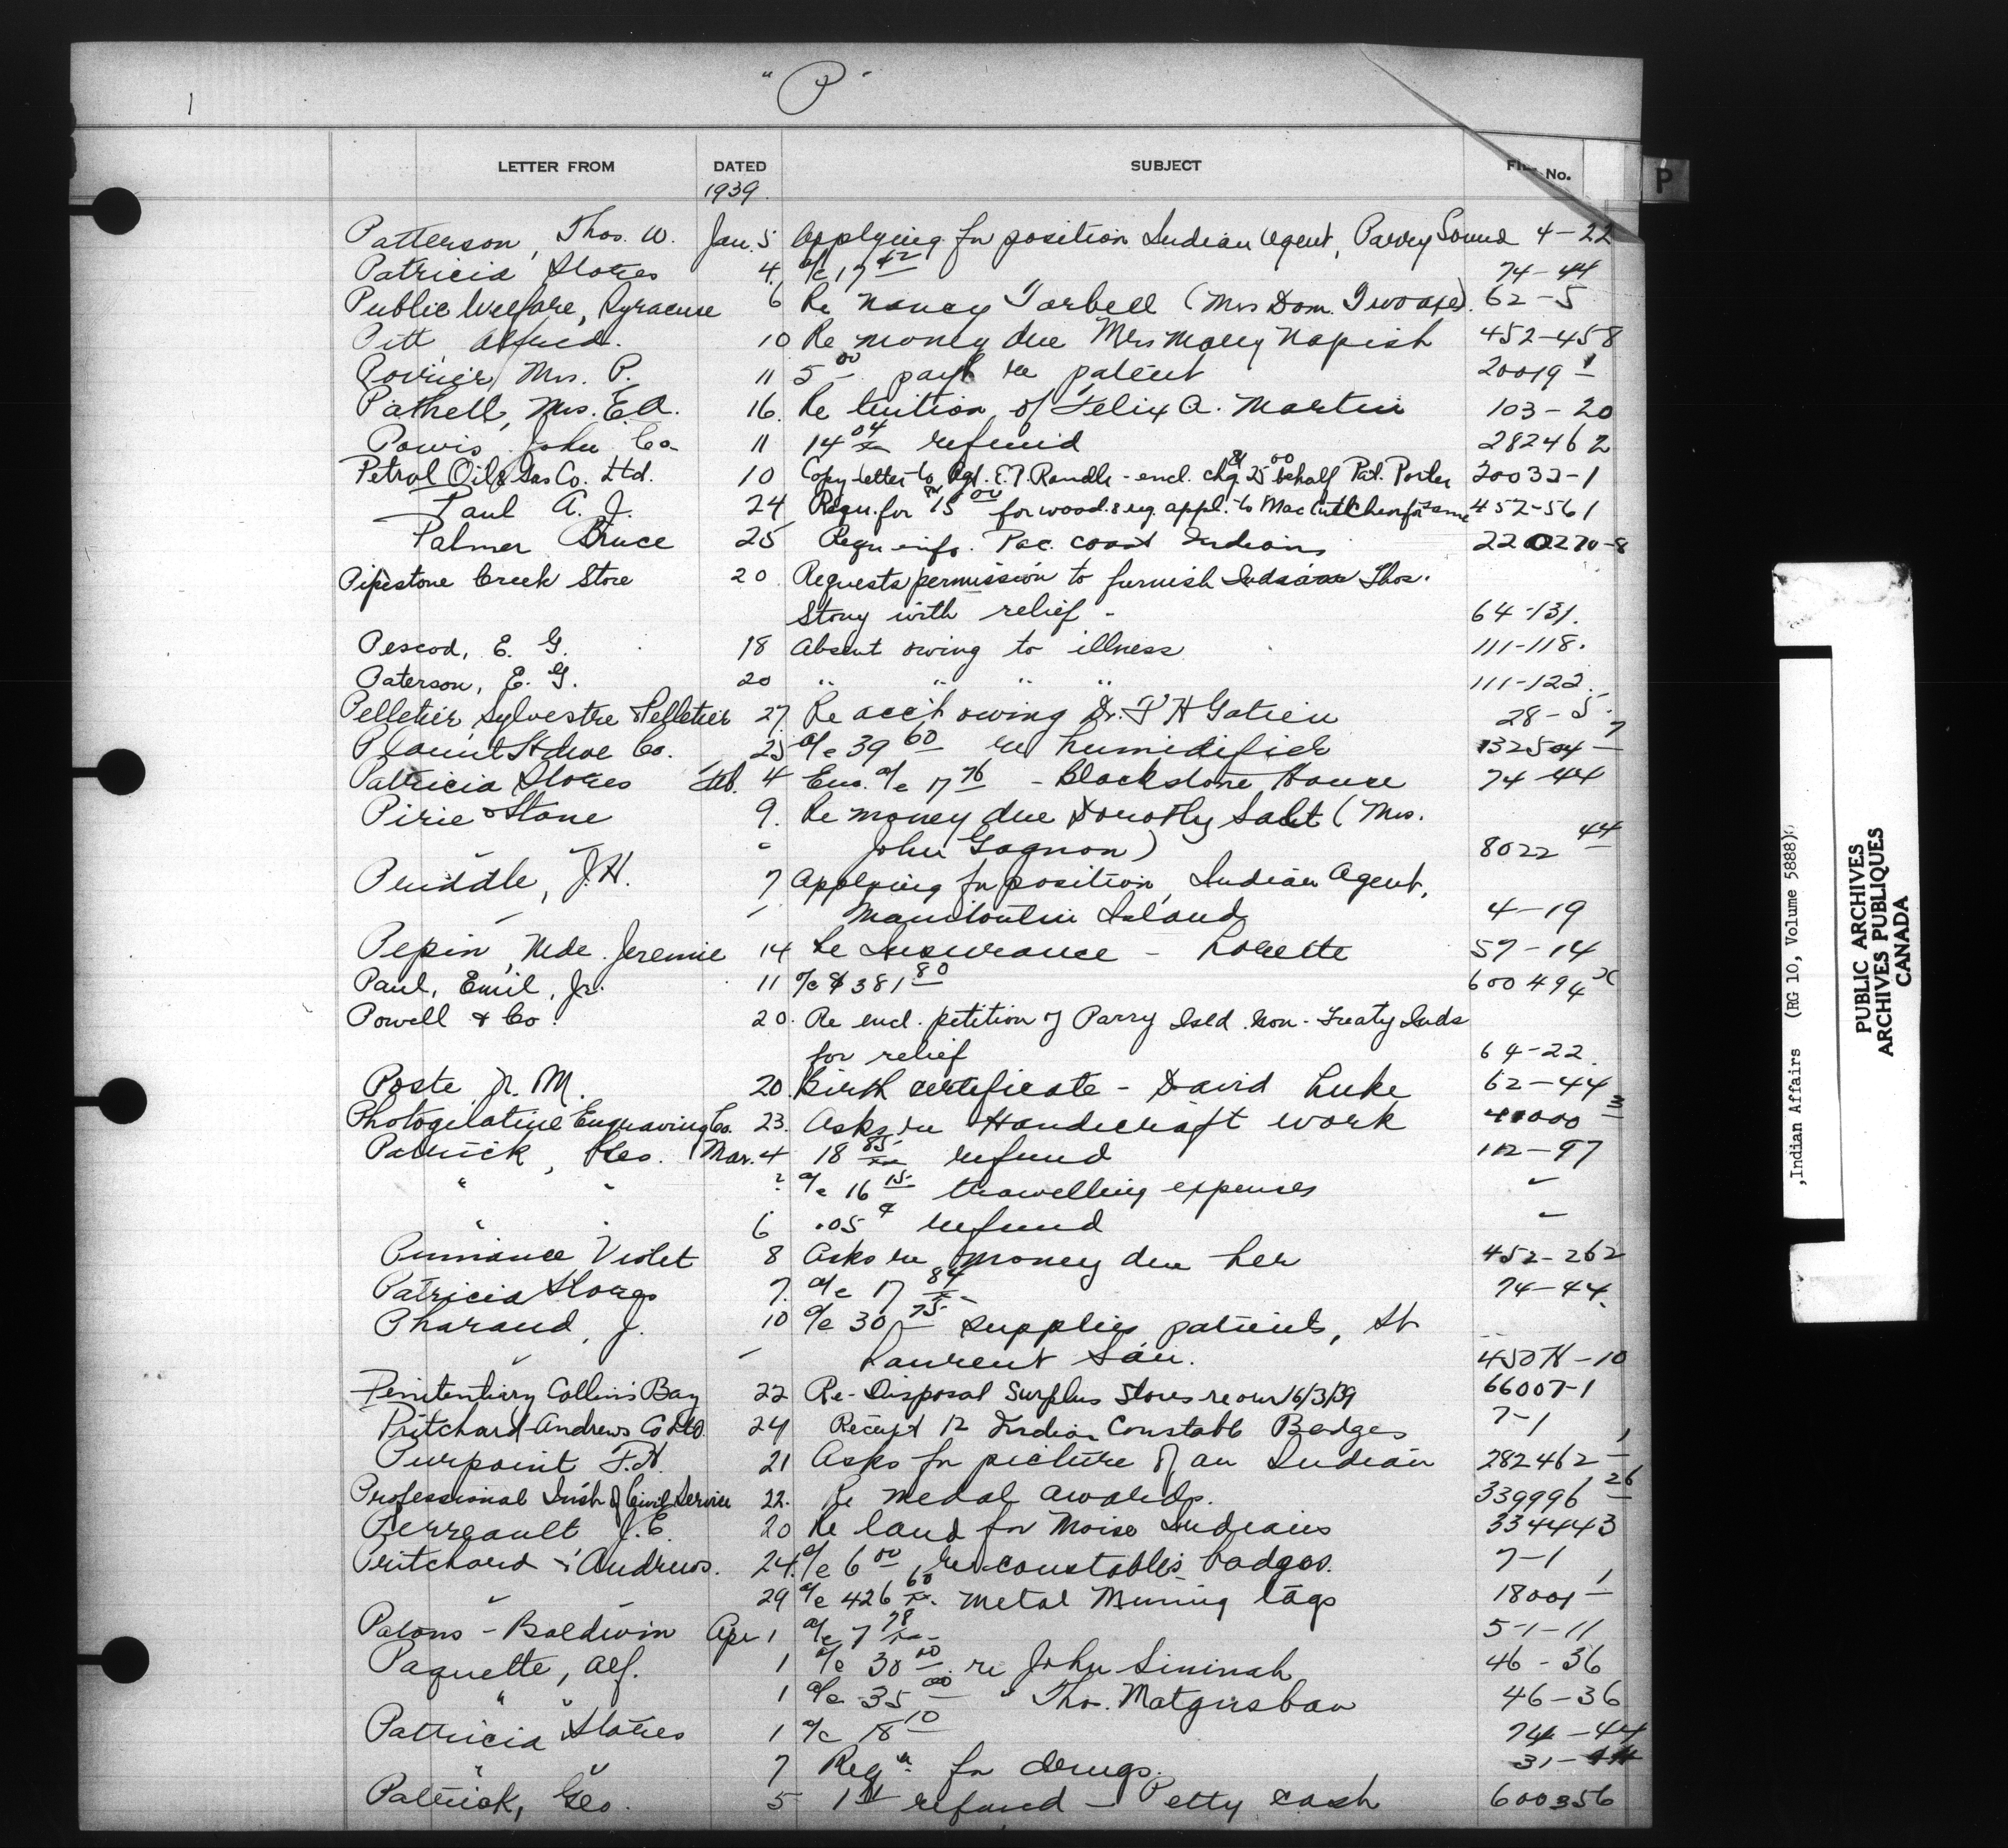 1
"P"
LETTER FROM DATED SUBJECT FILE No.
P
1939.
Patterson, Thos. W. Jan. 5 Applying for position Indian Agent, Parry Sound 4-22
Patricia Stores 4. a/c 17 42 74-44
Public Welfare, Syracuse 6 Re Nancy Tarbell (Mrs Dom. Twoaxe). 62-5
Pitt Alfred. 10 Re money due Mrs Mary Napish 452-458
Mrs. P. 11 5 00 payt re patent 20019 1
Mrs. E.A. 16. Re tuition of Felix A. Martin 103-20
Powis, John Co 11 14 04 refund 282462
Petrol Oil & Gas Co. Ltd. 10 Copy letter to Agt. E.T. Randle - encl. chq. 25 00 behalf Pat. Porter 20032-1
Paul A. J. 24 Requ. for 15 00 for wood & reg. appl. to for same 452-561
Palmer Bruce 25 Requ info. Pac. Coast Indians 220270-8
Pipestone Creek Store 20 Requests permission to furnish Indian Thos.
Stony with relief - 64-131.
Pescod, E. G. 18 Absent owing to illness 111-118.
Paterson, E. G. 20 " " " " 111-122.
Pelletier, Sylvestre & Pelletier 27. Re acc't owing Dr. P H Gatien 28-5.
Co. 25 a/c 39 60 re humidifier 132504 7
Patricia Stores Feb. 4 Enc. a/c 17 76 - Blackstone House 74-44
Pirie & Stone 9. Re money due Dorothy Salt (Mrs.
" " " John Gagnon) 8022 44
Priddle, J.H. 7 Applying for position Indian Agent,
Manitoulin Island 4-19
Pepin, Mde. Jeremie 14 Re Insurance - Lorette 57-14
Paul, Emil, Jr. 11 a/c $381 80 600494 X
Powell & Co. 20. Re encl. petition of Parry Isld. Non-Treaty Inds
for relief 64-22.
Poste N. M. 20 Birth certificate - David Luke 62-44
Photogelatine Engraving Co. 23. Asks re Handicraft work 41000 3
Patrick, Geo. Mar. 4 18 85 refund 112-97
" " ? a/c 16 15 travelling expenses "
" " 6 .05 ¢ refund "
Violet 8 Asks re money due her 452-262
Patricia Stores 7. a/c 17 84 74-44.
Pharand, J. 10 a/c 30 75 supplies patients, St
" " Laurent San. 450H-10
Penitentiary Collins Bay 22 Re-Disposal Surplus Stores re our 16/3/39 66007-1
Pritchard-Andrews Co Ltd. 24 Receipt 12 Indian Constable Badges 7-1
Purpoint F.H. 21 Asks for picture of an Indian 282462 1
Professional Inst. of Civil Service 22. Re Medal awards. 339996 26
Perreault J.E. 20 Re land for Moise Indians 334443
Pritchard & Andrews. 24. a/c 6 00 re constables badges. 7-1
" " 29 a/c 426 60 Metal Mining tags 18001 1
Patons-Baldwin Apr 1 a/c 7 78 5-1-11
Paquette, Alf. 1 a/c 30 00 re John Sininah 46-36
" " 1 a/c 35 00 " Thos. 46-36
Patricia Stores 1 a/c 18 10 74-44
" " 7 Reqn for drugs. 31-44
Patrick, Geo. 5 refund - Petty cash 600356
,Indian Affairs (RG 10, Volume 5888)
PUBLIC ARCHIVES
ARCHIVES PUBLIQUES
CANADA